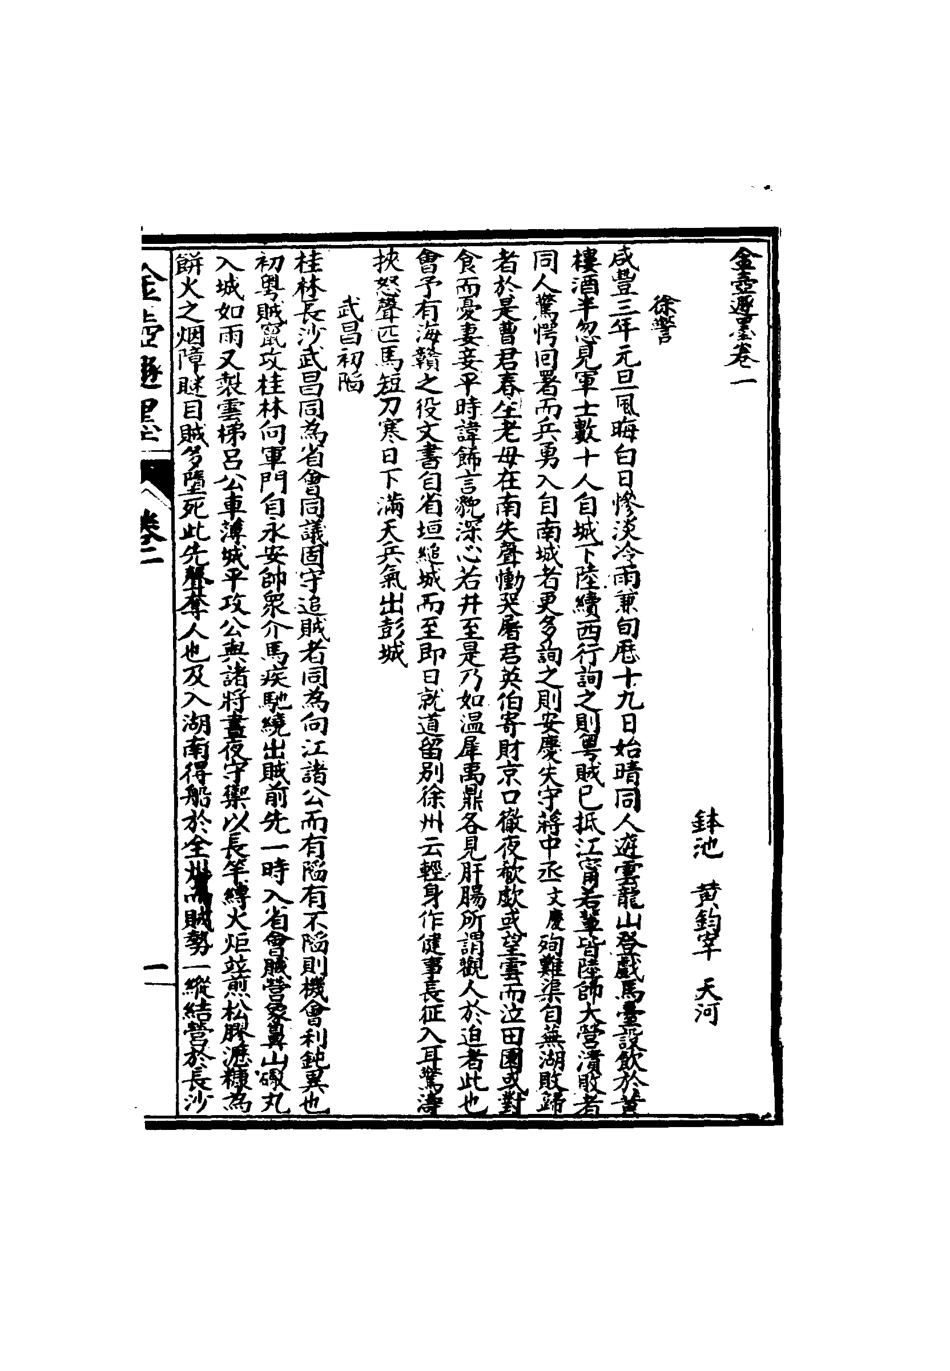 金壺遯墨卷一
鉢池 黃鈞宰 天河
徐警
咸豐三年元旦風晦白日慘淡冷雨兼旬厯十九日始晴同人遊雲龍山登戲馬臺設飲於黃
樓酒半忽見軍士數十人自城下陸續西行詢之則粵賊已抵江甯若輩皆陸師大營潰敗者
同人驚愕回署而兵勇入自南城者更多詢之則安慶失守蔣中丞文慶殉難渠自蕪湖敗歸
者於是曹君春生老母在南失聲慟哭屠君英伯寄財京口徹夜欷歔或望雲而泣田園或對
食而憂妻妾平時諱飾言貌深心若井至是乃如温犀禹鼎各見肝腸所謂觀人於迫者此也
會予有海贛之役文書自省垣縋城而至即日就道留別徐州云輕身作健事長征入耳驚濤
挾怒聲匹馬短刀寒日下滿天兵氣出彭城
武昌初陷
桂林長沙武昌同為省會同議固守追賊者同為向江諸公而有陷有不陷則機會利鈍異也
初粵賊竄攻桂林向軍門自永安帥眾介馬疾馳繞出賊前先一時入省會賊營象鼻山礮丸
入城如雨又製雲梯呂公車薄城平攻公與諸將晝夜守禦以長竿縛火炬竝煎松膠瀝糠為
餅火之烟障賊目賊多墮死此先聲奪人也及入湖南得船於全州而賊勢一縱結營於長沙
金壺遯墨 卷一 一